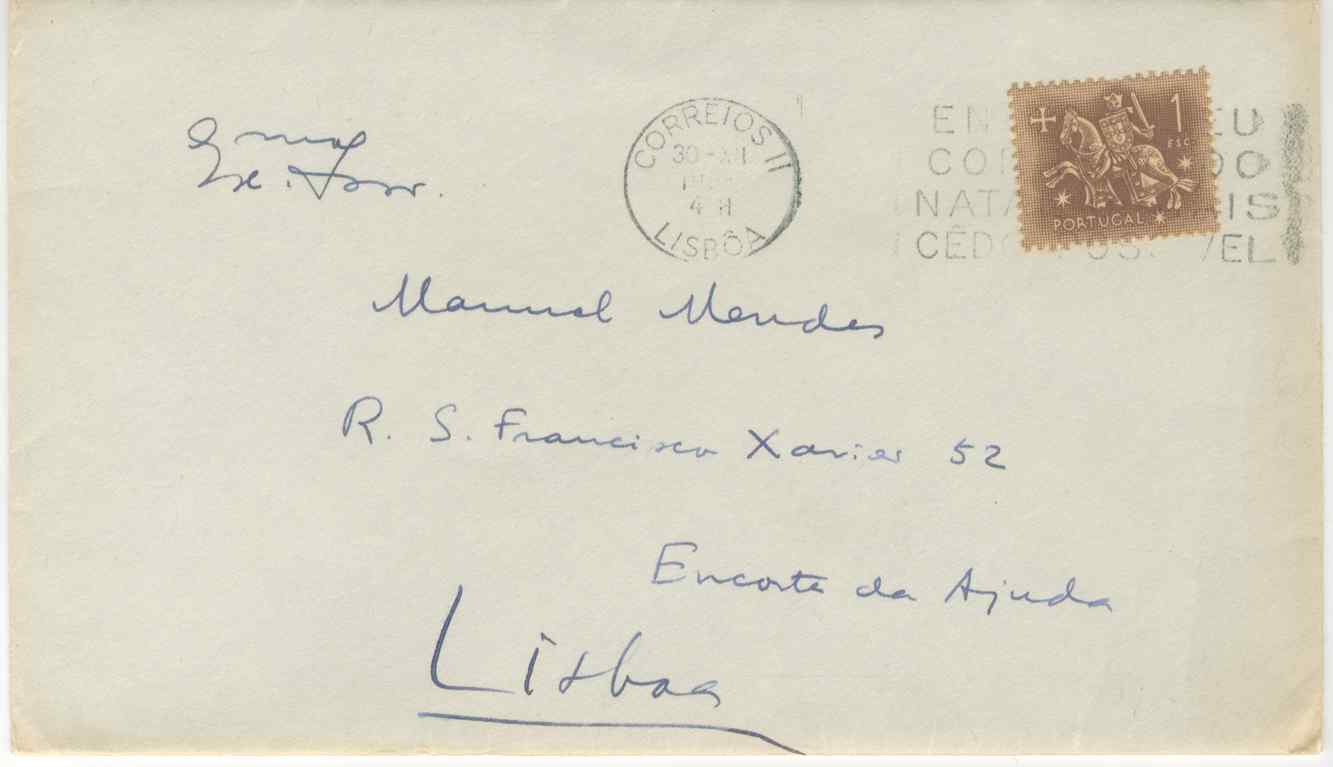 Exmo
Exe. Snr.
CORREIOS II
30-XII
4 H
LISBÔA
EN EU
CO DO
NATA IS
CÊDO POS VEL
1
ESC
PORTUGAL
Manuel Mendes
R. S. Francisco Xavier 52
Encosta da Ajuda
Lisboa